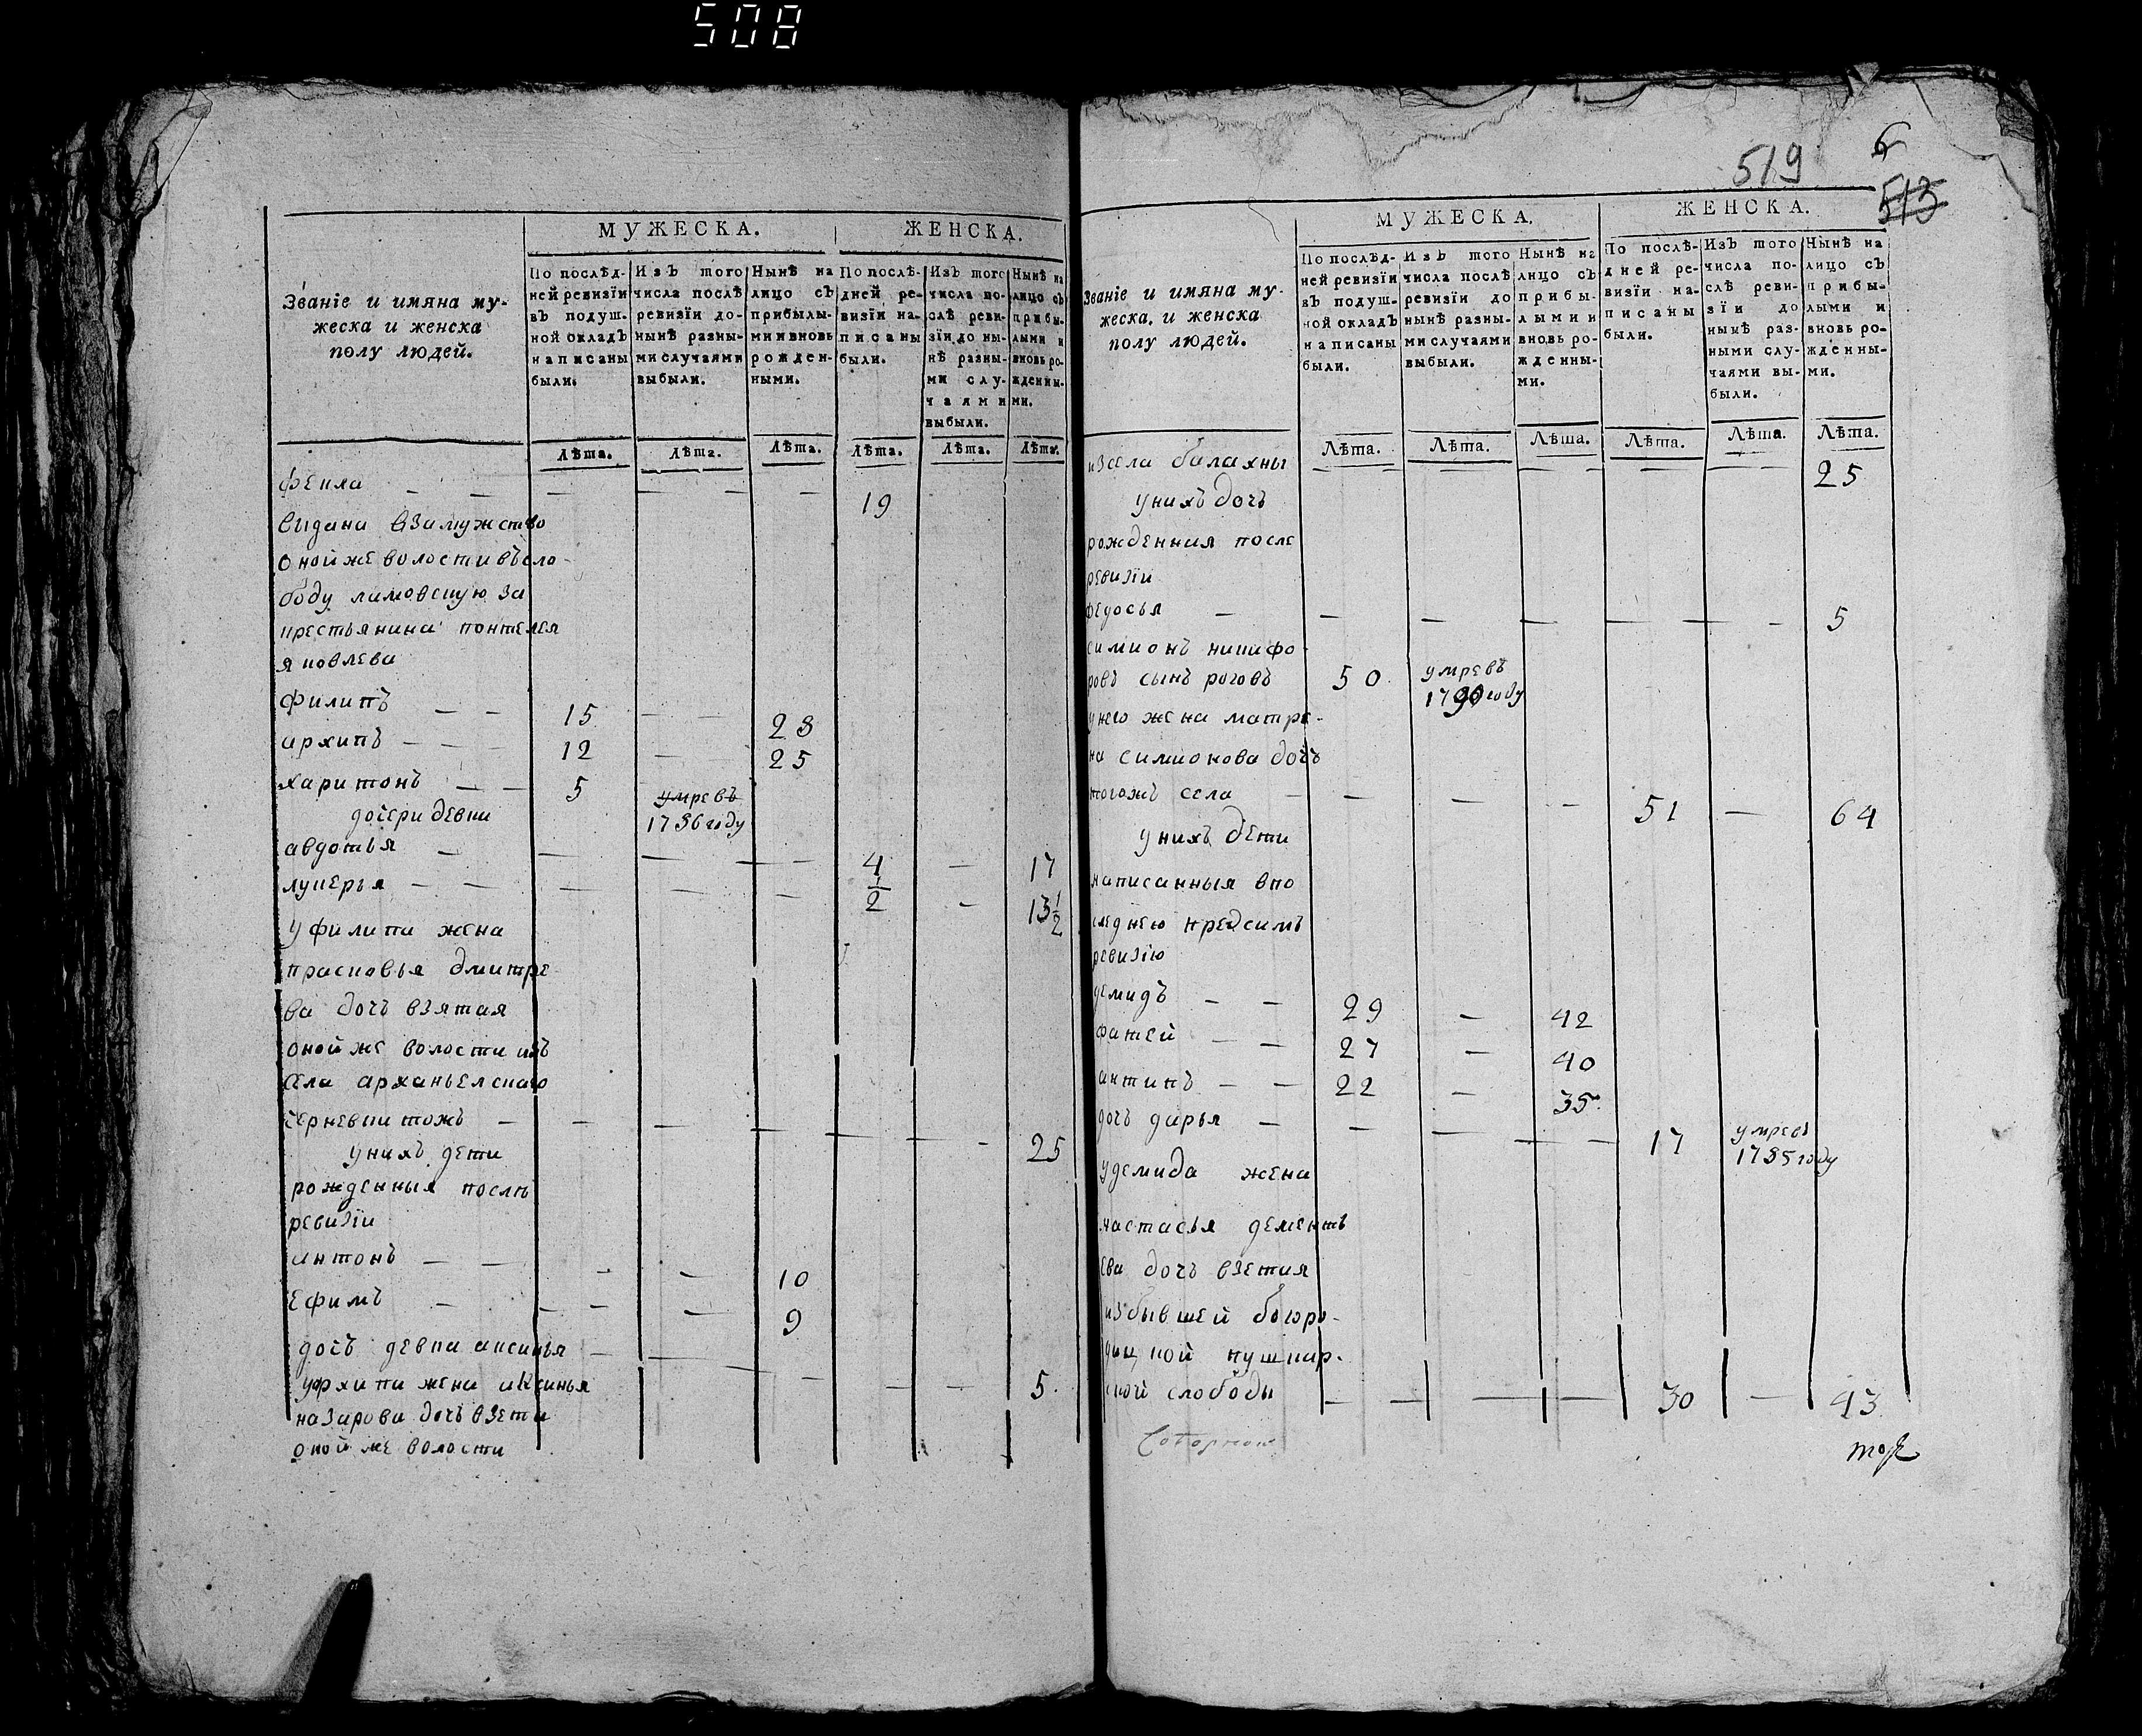 508
МУЖЕСКА. ЖЕНСКА.
Званіе и имяна му-
жеска и женска
полу людей.
По послѣд-
ней ревизіи
въ подуш-
ной окладъ
написаны
были.
Изъ того
числа послѣ
ревизіи до-
нынѣ разны-
ми случаями
выбыли.
Нынѣ на
лицо съ
прибылы-
ми и вновь
рожден-
ными.
По послѣ-
дней ре-
визіи на-
писаны
были.
Изъ того
числа по-
слѣ реви-
зіи до ны-
нѣ разны-
ми слу-
чаями
выбыли.
Нынѣ на
лицо съ
прибы-
лыми и
вновь ро-
жденны-
ми.
Лѣта. Лѣта. Лѣта. Лѣта. Лѣта. Лѣта.
фекла — — — — — — 19
выдана взамужство
онойже волости въсло-
боду лимовскую за
крестьянина понтелея
яковлева
филипъ — — 15 — — 28
архипъ — — — 12 — — 25
харитонъ — — 5 умревъ
1786 году
дочери девки
авдотья — — — — — 4 — 17
лукерья — — — — — 1/2 — 13 1/2
уфилипа жена
прасковья дмитре
ва дочь взятая
онойже волости изъ
села арханьелскаго
черневки тожъ — — — — — — — 25
унихъ дети
рожденныя послѣ
ревизіи
антонъ — — — — 10
ефимъ — — — — 9
дочь девка аксинья — — — — — — 5.
уархипа жена аксинья
назарова дочь взета
оной же волости
519
6
513
МУЖЕСКА. ЖЕНСКА.
Званіе и имяна му-
жеска, и женска
полу людей.
По послѣд-
ней ревизіи
въ подуш-
ной окладъ
написаны
были.
Изъ того
числа послѣ
ревизіи до
нынѣ разны-
ми случаями
выбыли.
Нынѣ на
лицо съ
прибы-
лыми и
вновь ро-
жденны-
ми.
По послѣ-
дней ре-
визіи на-
писаны
были.
Изъ того
числа по-
слѣ реви-
зіи до
нынѣ раз-
ными слу-
чаями вы-
были.
Нынѣ на
лицо съ
прибы-
лыми и
вновь ро-
жденны-
ми.
Лѣта. Лѣта. Лѣта. Лѣта. Лѣта. Лѣта.
изсела балахны — — — — — — 25
унихъ дочь
рожденная после
ревизіи
федосья — — — — — — — 5
симионъ никифо-
ровъ сынъ роговъ 50 умревъ
1790 году
унего жена матре-
на симионова дочь
тогожъ села — — — — 51 — 64
унихъ дети
написанныя впо
следнею предсимъ
ревизію
демидъ — — 29 — 42
фатей — — 27 — 40
антипъ — — 22 — 35.
дочь дарья — — — — — 17 умревъ
1785 году
удемида жена
настасья дементь
ева дочь взетая
избывшей богоро-
дицкой пушкар-
ской слободы — — — — — 30 — 43